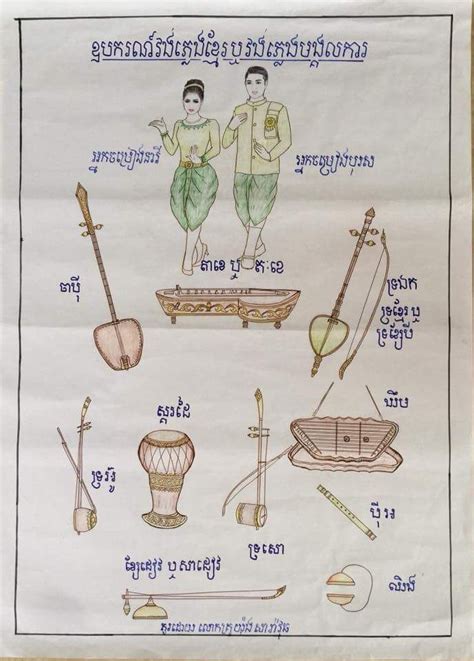 ឧបករណ៍វង់ភ្លេងខ្មែរឬវង់ភ្លេងមង្គលការ
អ្នកចម្រៀងនារី
អ្នកចម្រៀងបុរស
តាខេ ឬ ត:ខេ
ចាប៉ី
ទ្រឯក
ទ្រខ្មែរ ឬ
ទ្រខ្សែបី
ស្គរដៃ
ឃឹម
ទ្រអ៊ូ
ប៉ី អ
ទ្រសោ
ខ្សែដៀវ ឬ សាដៀវ
ឈិង
គូរដោយ លោកគ្រូ